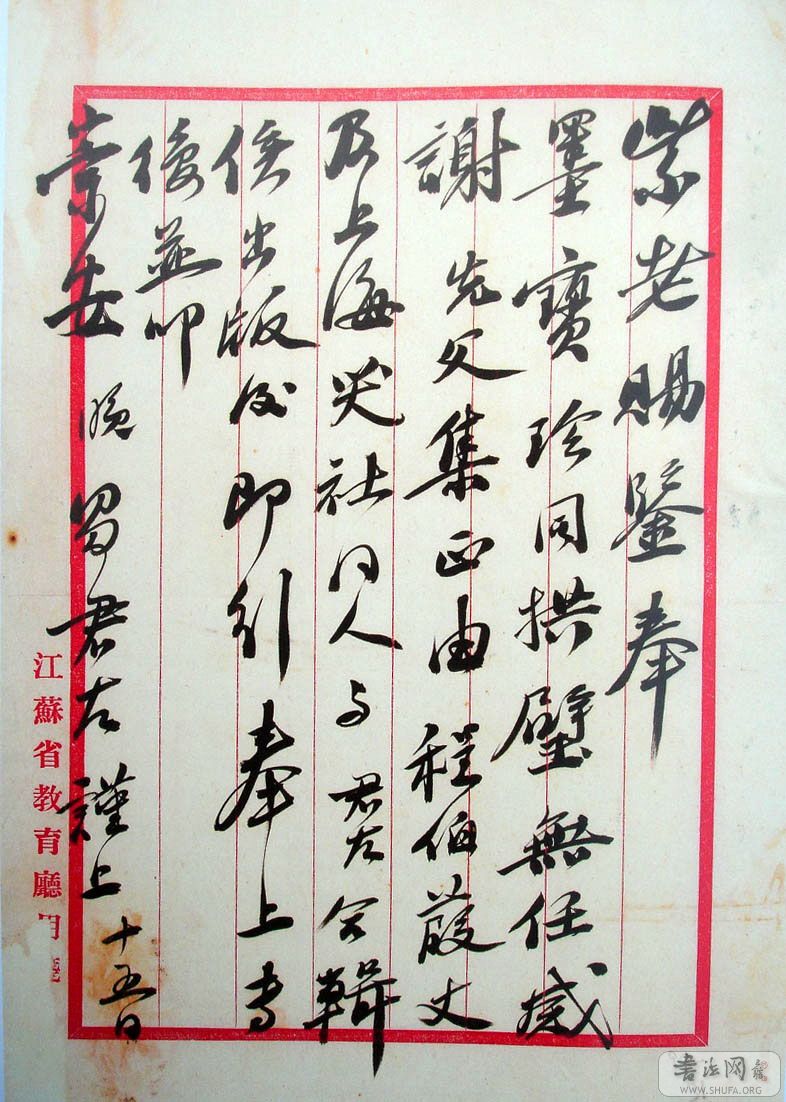 紫老賜鑒奉
墨寶珍同拱璧無任感
謝 先父集正由程伯葭丈
及上海社同人与君左合輯
俟出版後即行奉上專
復並叩
崇安 晚易君左謹上 十五日
江蘇省教育廳用箋
書法网
WWW.SHUFA.ORG